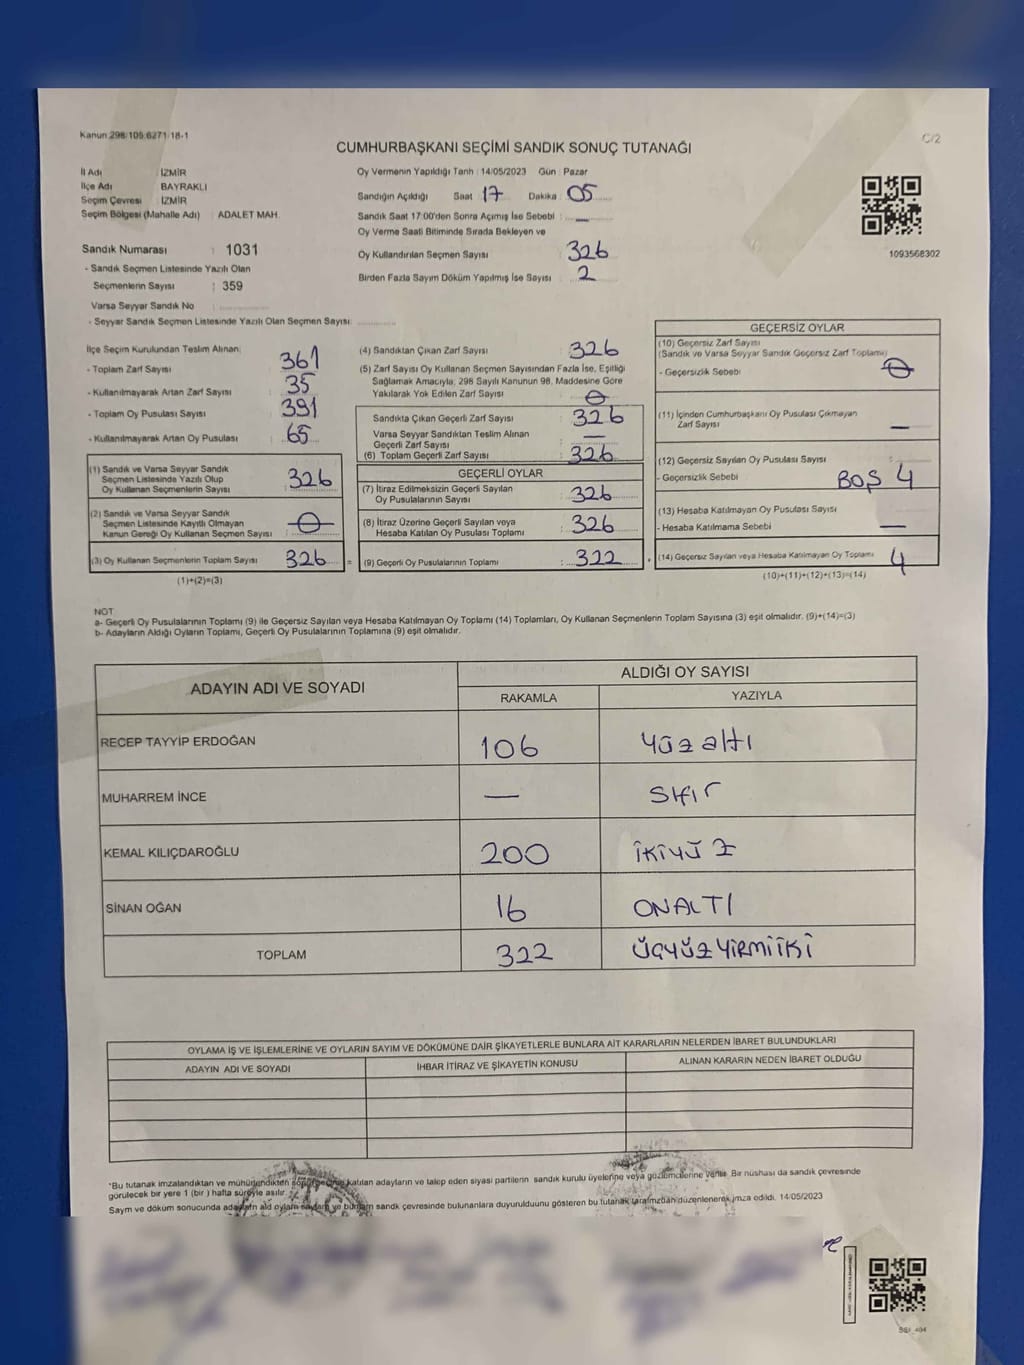 Kanun 298/105 6271/18-1
C/2
CUMHURBAŞKANI SEÇİMİ SANDIK SONUÇ TUTANAĞI
İl Adı : İZMİR
İlçe Adı BAYRAKLI
Seçim Çevresi : İZMİR
Seçim Bölgesi (Mahalle Adı) : ADALET MAH.
Sandık Numarası : 1031
- Sandık Seçmen Listesinde Yazılı Olan
Seçmenlerin Sayısı : 359
Varsa Seyyar Sandık No
- Seyyar Sandık Seçmen Listesinde Yazılı Olan Seçmen Sayısı:
Oy Vermenin Yapıldığı Tarih : 14/05/2023 Gün : Pazar
Sandığın Açıldığı Saat 17 Dakika 05
Sandık Saat 17:00'den Sonra Açımış İse Sebebi : —
Oy Verme Saati Bitiminde Sırada Bekleyen ve
Oy Kullandırılan Seçmen Sayısı 326
Birden Fazla Sayım Döküm Yapılmış İse Sayısı 2
1093568302
İlçe Seçim Kurulundan Teslim Alınan:
- Toplam Zarf Sayısı 361
- Kullanılmayarak Artan Zarf Sayısı 35
- Toplam Oy Pusulası Sayısı 391
- Kullanılmayarak Artan Oy Pusulası 65
(1) Sandık ve Varsa Seyyar Sandık
Seçmen Listesinde Yazılı Olup
Oy Kullanan Seçmenlerin Sayısı 326
(2) Sandık ve Varsa Seyyar Sandık
Seçmen Listesinde Kayıtlı Olmayan
Kanun Gereği Oy Kullanan Seçmen Sayısı : 0
(3) Oy Kullanan Seçmenlerin Toplam Sayısı 326 =
(1)+(2)=(3)
(4) Sandıktan Çıkan Zarf Sayısı 326
(5) Zarf Sayısı Oy Kullanan Seçmen Sayısından Fazla İse, Eşitliği
Sağlamak Amacıyla, 298 Sayılı Kanunun 98. Maddesine Göre
Yakılarak Yok Edilen Zarf Sayısı : 0
Sandıkta Çıkan Geçerli Zarf Sayısı 326
Varsa Seyyar Sandıktan Teslim Alınan
Geçerli Zarf Sayısı : —
(6) Toplam Geçerli Zarf Sayısı : 326
GEÇERLİ OYLAR
(7) İtiraz Edilmeksizin Geçerli Sayılan
Oy Pusulalarının Sayısı : 326
(8) İtiraz Üzerine Geçerli Sayılan veya
Hesaba Katılan Oy Pusulası Toplamı : 326
(9) Geçerli Oy Pusulalarının Toplamı : 322 +
GEÇERSİZ OYLAR
(10) Geçersiz Zarf Sayısı
(Sandık ve Varsa Seyyar Sandık Geçersiz Zarf Toplamı)
- Geçersizlik Sebebi 0
(11) İçinden Cumhurbaşkanı Oy Pusulası Çıkmayan
Zarf Sayısı —
(12) Geçersiz Sayılan Oy Pusulası Sayısı
- Geçersizlik Sebebi BOŞ 4
(13) Hesaba Katılmayan Oy Pusulası Sayısı
- Hesaba Katılmama Sebebi —
(14) Geçersiz Sayılan veya Hesaba Katılmayan Oy Toplamı 4
(10)+(11)+(12)+(13)=(14)
NOT
a- Geçerli Oy Pusulalarının Toplamı (9) ile Geçersiz Sayılan veya Hesaba Katılmayan Oy Toplamı (14) Toplamları, Oy Kullanan Seçmenlerin Toplam Sayısına (3) eşit olmalıdır. (9)+(14)=(3)
b- Adayların Aldığı Oyların Toplamı, Geçerli Oy Pusulalarının Toplamına (9) eşit olmalıdır.
ADAYIN ADI VE SOYADI
ALDIĞI OY SAYISI
RAKAMLA YAZIYLA
RECEP TAYYİP ERDOĞAN 106 yüz altı
MUHARREM İNCE — Sıfır
KEMAL KILIÇDAROĞLU 200 İKİYÜZ
SİNAN OĞAN 16 ONALTI
TOPLAM 322 ÜÇYÜZYİRMİİKİ
OYLAMA İŞ VE İŞLEMLERİNE VE OYLARIN SAYIM VE DÖKÜMÜNE DAİR ŞİKAYETLERLE BUNLARA AİT KARARLARIN NELERDEN İBARET BULUNDUKLARI
ADAYIN ADI VE SOYADI İHBAR İTİRAZ VE ŞİKAYETİN KONUSU ALINAN KARARIN NEDEN İBARET OLDUĞU
*Bu tutanak imzalandıktan ve mühürlendikten katılan adayların ve talep eden siyasi partilerin sandık kurulu üyelerine veya gözlemcilerine verilir. Bir nüshası da sandık çevresinde
görülecek bir yere 1 (bir ) hafta süreyle asılır.
Sayım ve döküm sonucunda ve bunların sandık çevresinde bulunanlara duyurulduğunu gösteren bu tutanak tarafımızdan düzenlenerek imza edildi. 14/05/2023